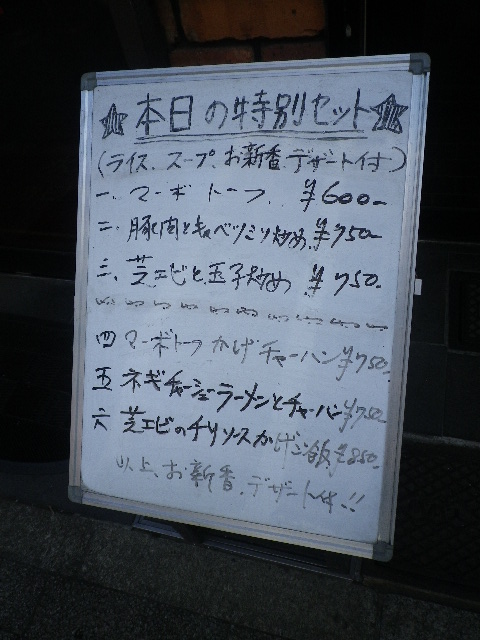 ★本日の特別セット★
(ライス、スープ、お新香、デザート付)
一、マーボトーフ ¥600-
二、豚肉とキャベツミソ炒め ¥750-
三、芝エビと玉子炒め ¥750-
四 マーボトーフかけチャーハン ¥750-
五 ネギチャーシューラーメンとチャーハン ¥750-
六 芝エビのチリソースかけご飯 ¥850-
以上、お新香、デザート付!!